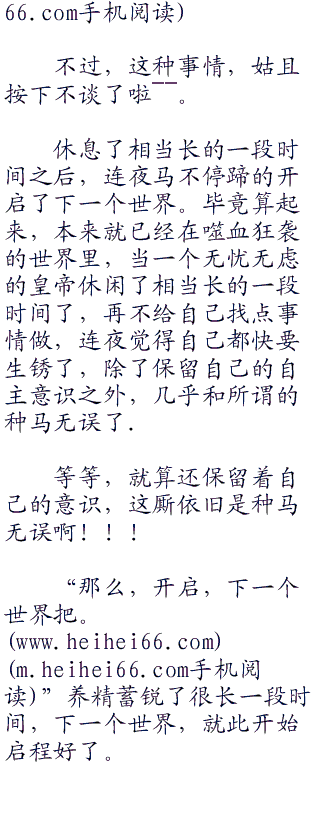 66.com手机阅读)
不过，这种事情，姑且
按下不谈了啦￣￣。
休息了相当长的一段时
间之后，连夜马不停蹄的开
启了下一个世界。毕竟算起
来，本来就已经在噬血狂袭
的世界里，当一个无忧无虑
的皇帝休闲了相当长的一段
时间了，再不给自己找点事
情做，连夜觉得自己都快要
生锈了，除了保留自己的自
主意识之外，几乎和所谓的
种马无误了.
等等，就算还保留着自
己的意识，这厮依旧是种马
无误啊！！！
“那么，开启，下一个
世界把。
(www.heihei66.com)
(m.heihei66.com手机阅
读)”养精蓄锐了很长一段时
间，下一个世界，就此开始
启程好了。